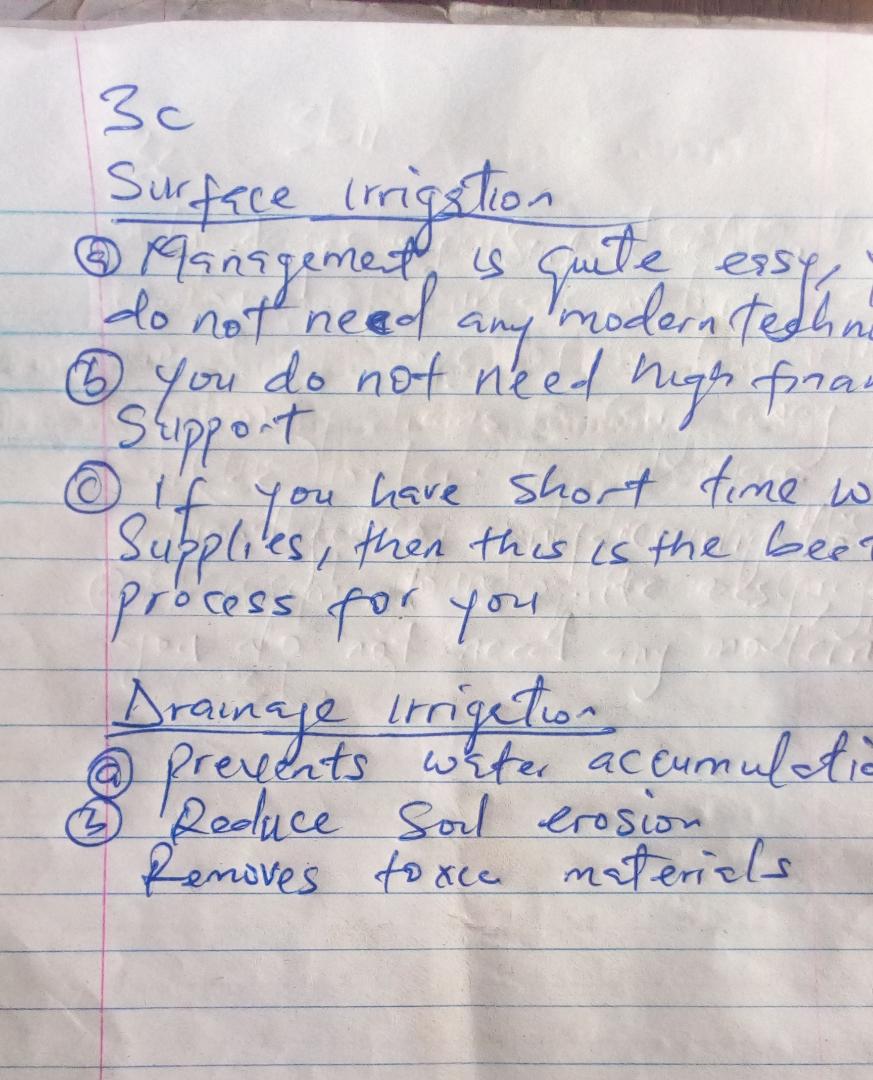 3c
Surface irrigation
(a) Management is quite easy,
do not need any modern techni
(b) you do not need high finan
Support
(c) If you have short time w
Supplies, then this is the best
process for you
Drainage irrigation
(a) prevents water accumulatio
(b) Reduce Soil erosion
Removes toxic materials